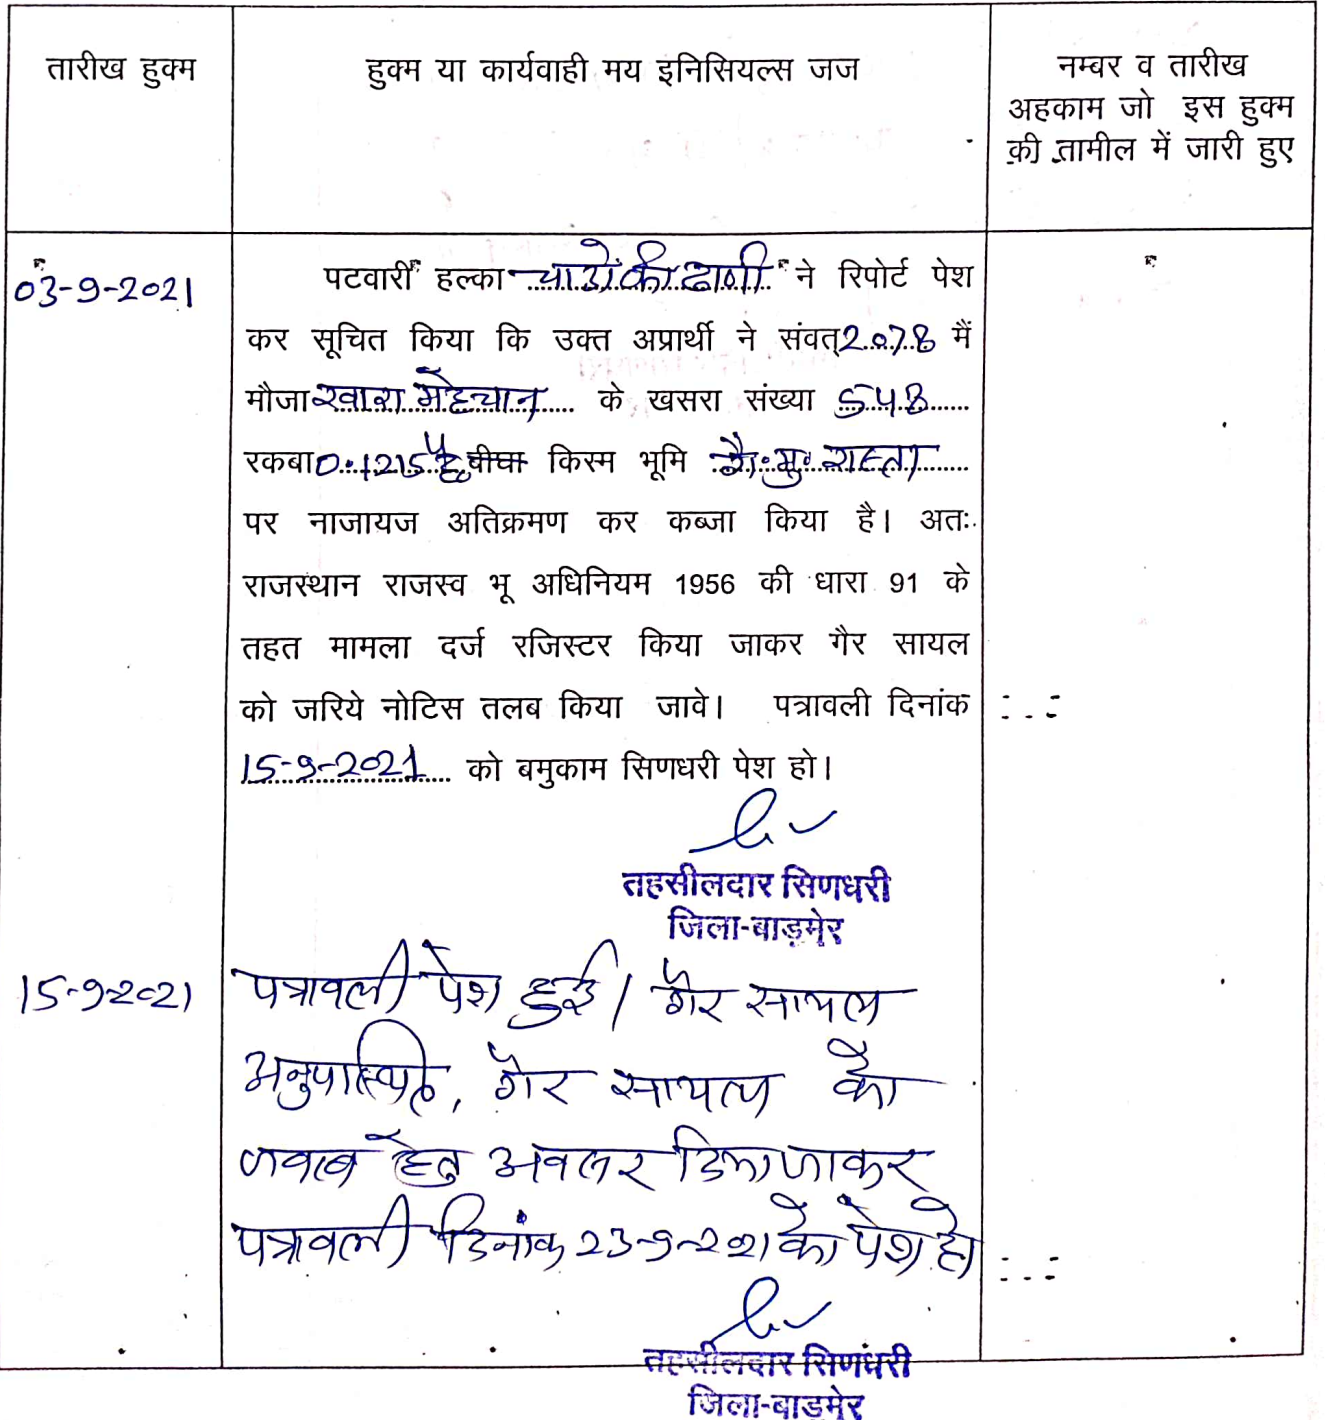 तारीख हुक्म
हुक्म या कार्यवाही मय इनिसियल्स जज
नम्बर व तारीख
अहकाम जो इस हुक्म
की तामील में जारी हुए
03-9-2021
पटवारी हल्का की ढाणी ने रिपोर्ट पेश
कर सूचित किया कि उक्त अप्रार्थी ने संवत् 2078 में
मौजा खारा मेहचान के खसरा संख्या 548
रकबा 0.1215 है बीघा किस्म भूमि गै.मु. रास्ता
पर नाजायज अतिक्रमण कर कब्जा किया है। अतः
राजस्थान राजस्व भू अधिनियम 1956 की धारा 91 के
तहत मामला दर्ज रजिस्टर किया जाकर गैर सायल
को जरिये नोटिस तलब किया जावे। पत्रावली दिनांक
15-9-2021 को बमुकाम सिणधरी पेश हो।
तहसीलदार सिणधरी
जिला-बाड़मेर
15-9-2021
पत्रावली पेश हुई। गैर सायल
अनुपस्थित, गैर सायल को
जवाब हेतु अवसर दिया जाकर
पत्रावली दिनांक 23-9-2021 को पेश हो
तहसीलदार सिणधरी
जिला-बाड़मेर